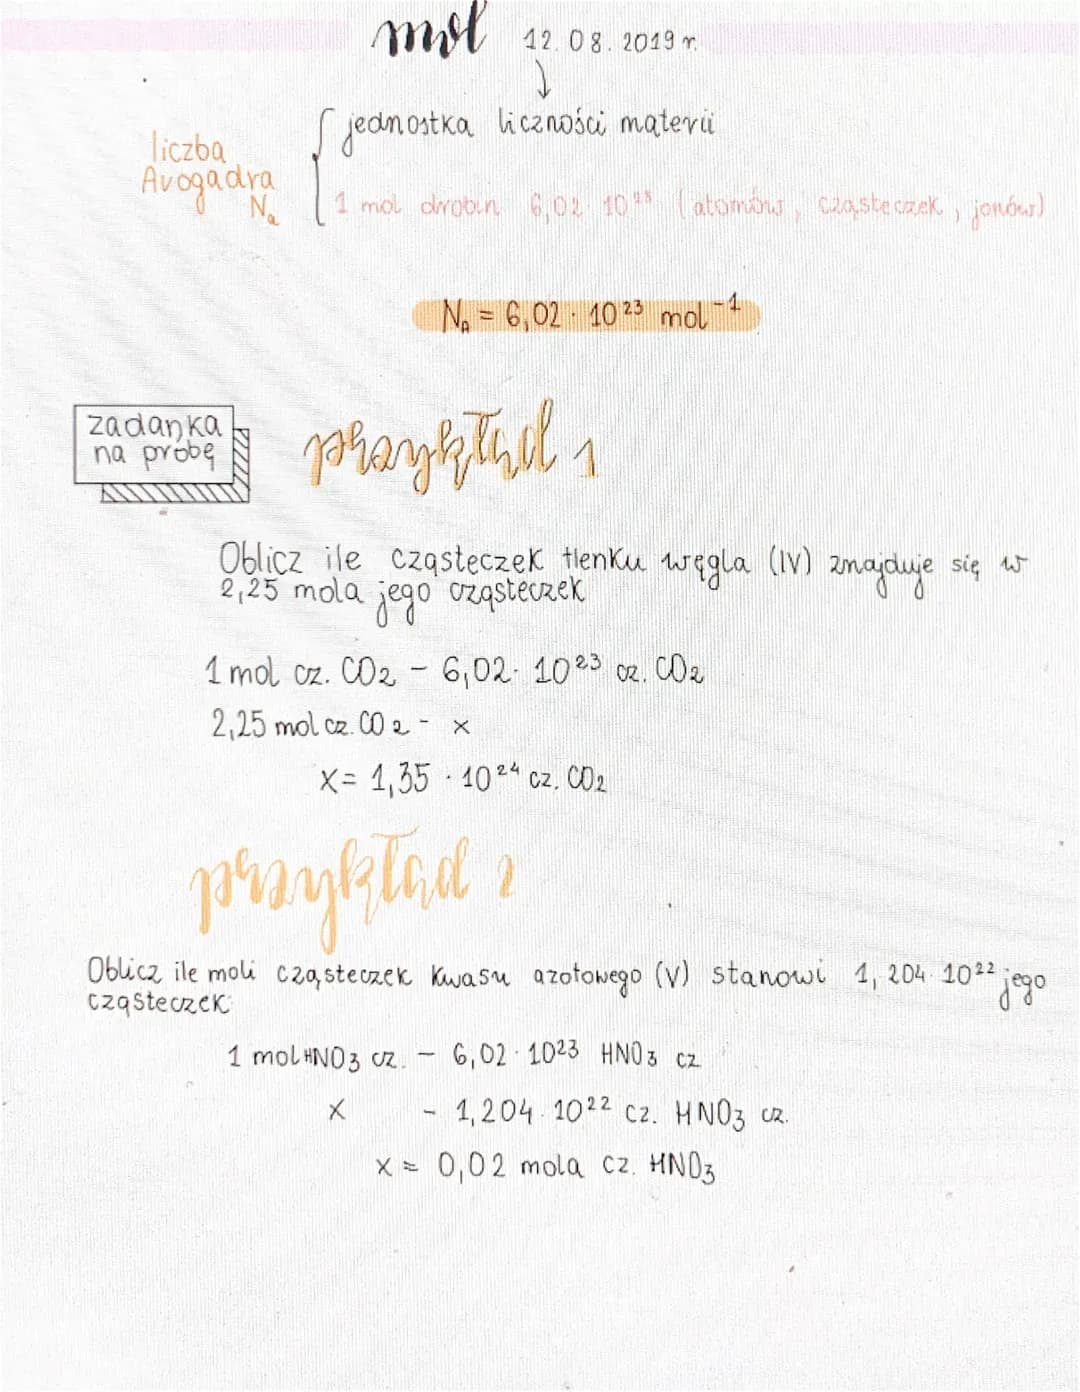 mol 12.08.2019 r.
jednostka liczności materii
liczba
Avogadra
Na
1 mol drobin 6,02 · 10²³ (atomów, cząsteczek, jonów)
Nₐ = 6,02 · 10²³ mol⁻¹
zadanka
na probę
przykład 1
Oblicz ile cząsteczek tlenku węgla (IV) znajduje się w
2,25 mola jego cząsteczek
1 mol cz. CO₂ – 6,02 · 10²³ cz. CO₂
2,25 mol cz. CO₂ - x
x = 1,35 · 10²⁴ cz. CO₂
przykład 2
Oblicz ile moli cząsteczek kwasu azotowego (V) stanowi 1,204 · 10²² jego
cząsteczek
1 mol HNO3 cz. – 6,02 · 10²³ HNO3 cz
x - 1,204 · 10²² cz. HNO3 cz.
x = 0,02 mola cz. HNO3